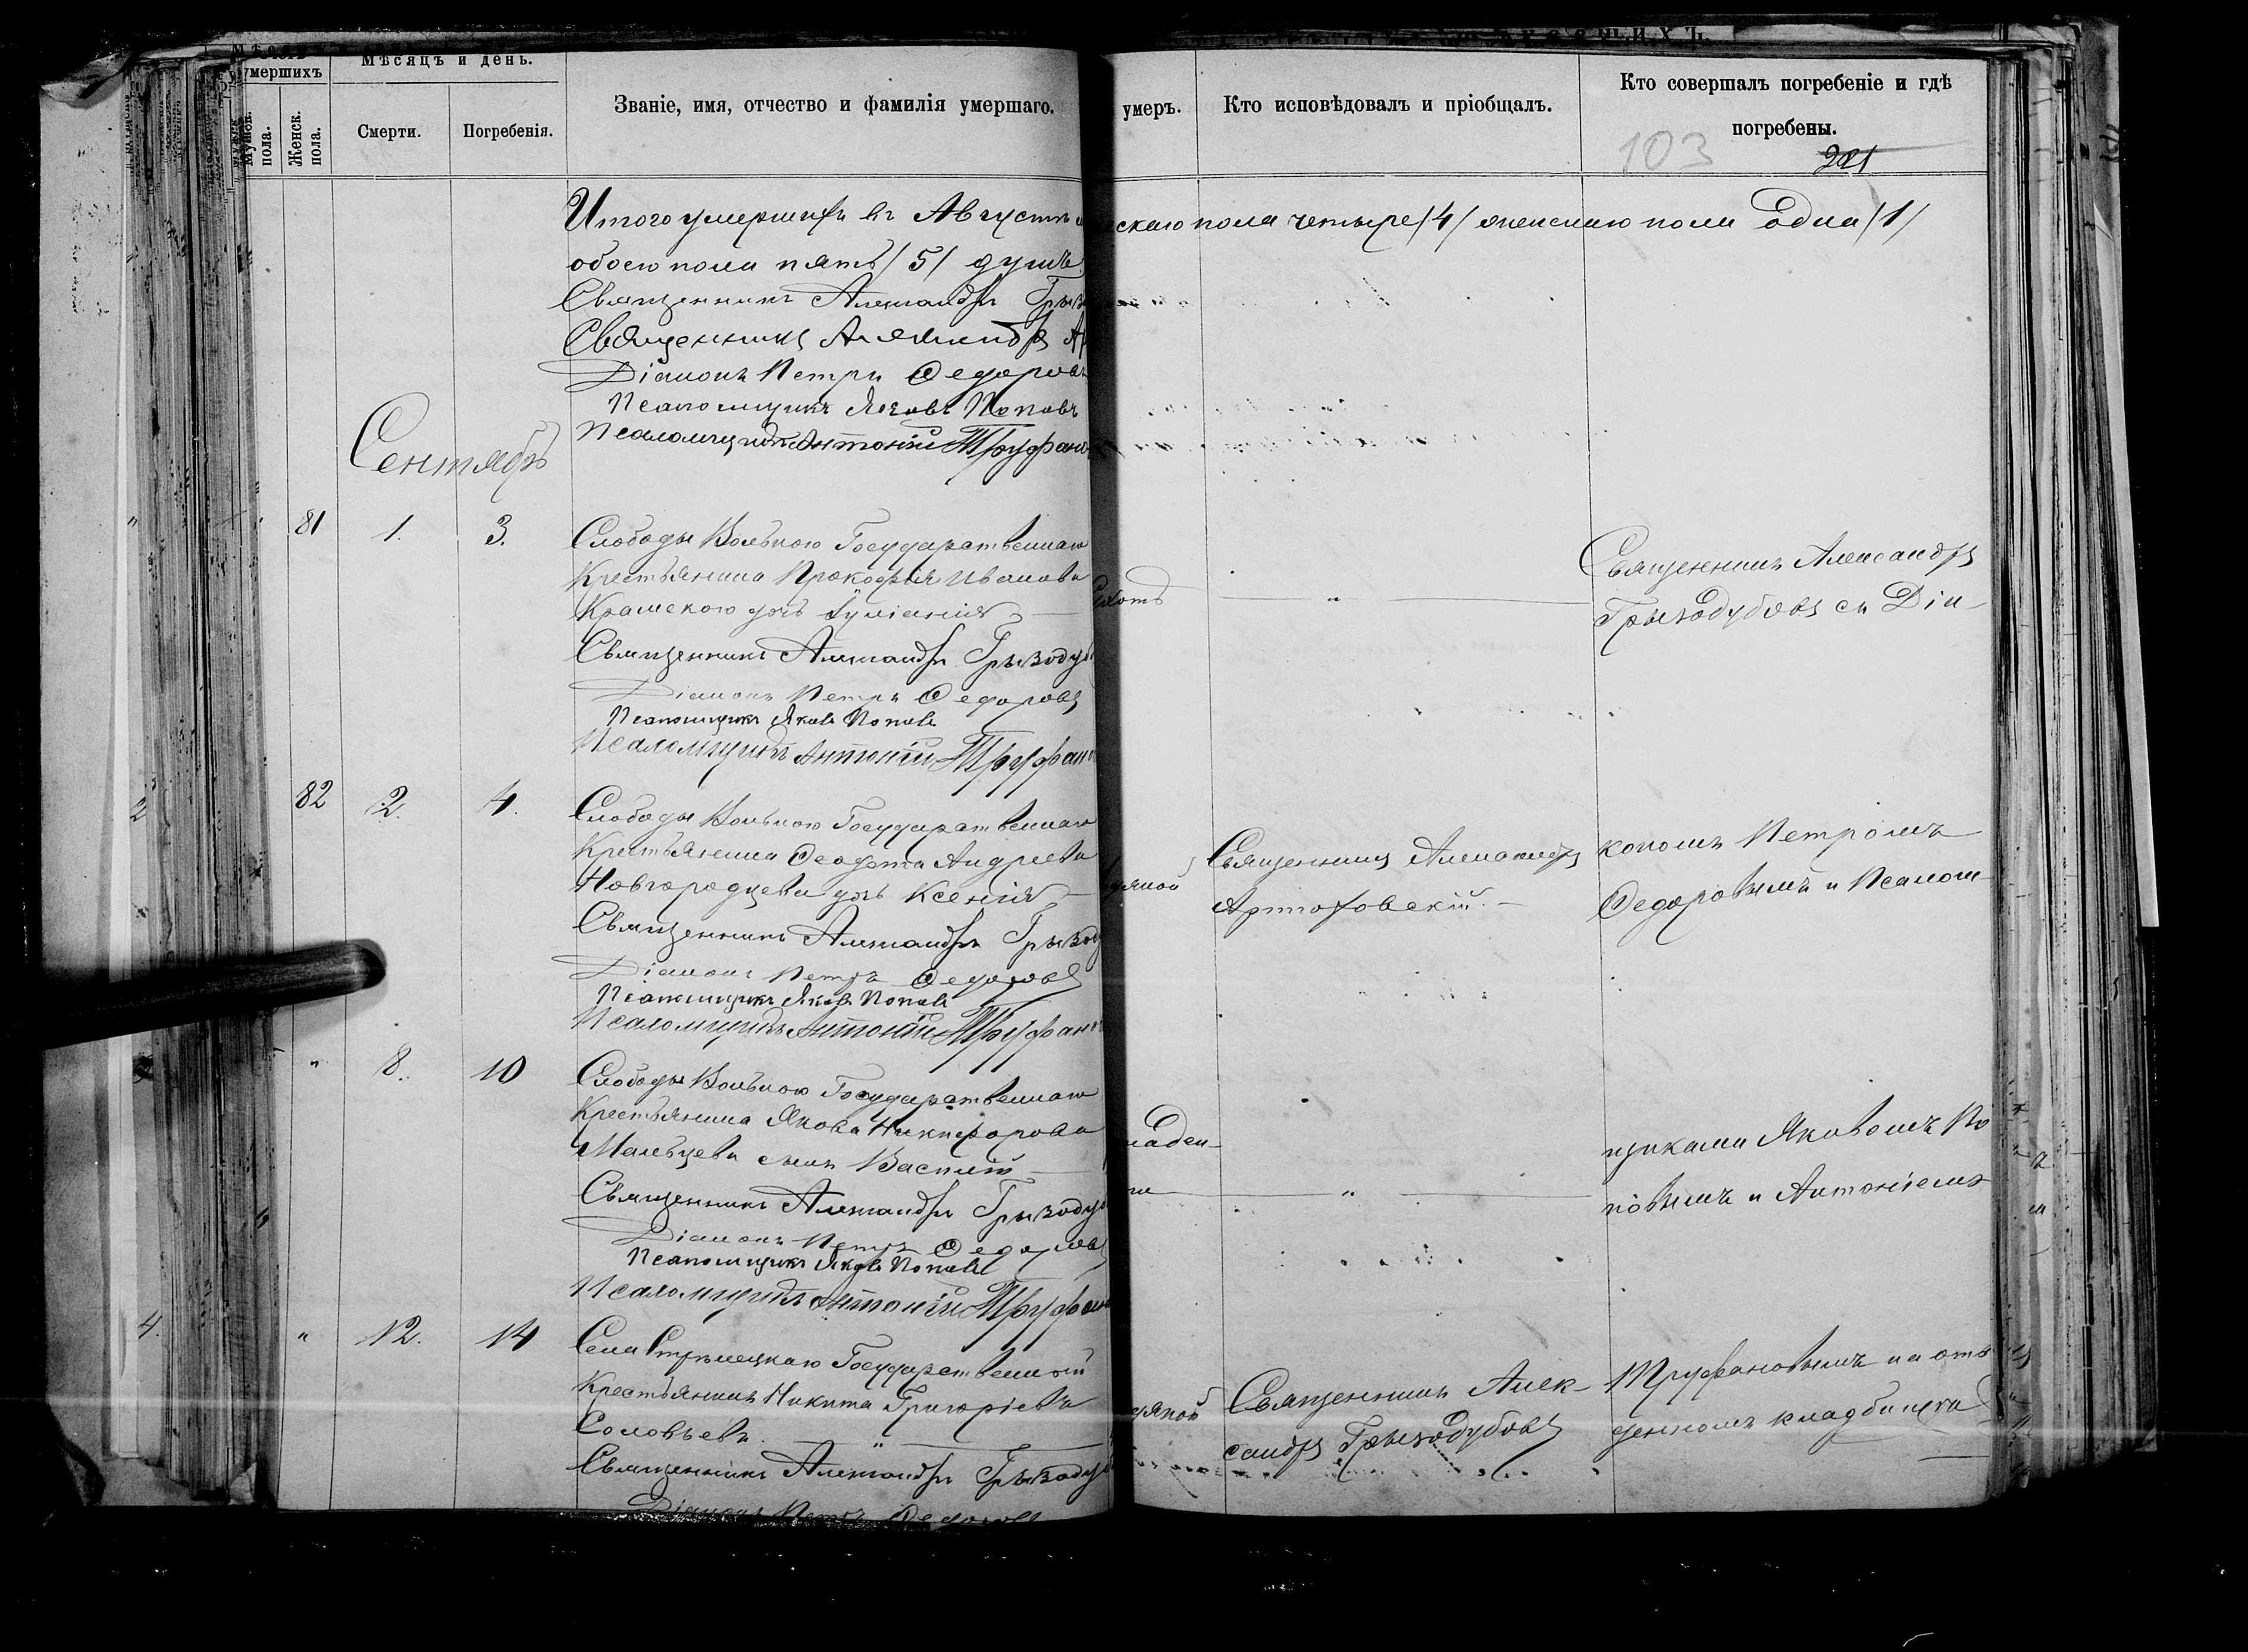 умершихъ
Мѣсяцъ и день.
Мужск. пола.
Женск. пола.
Смерти.
Погребенія.
Званіе, имя, отчество и фамилія умершаго.
умеръ.
Кто исповѣдовалъ и пріобщалъ.
Кто совершалъ погребеніе и гдѣ
погребены.
103
Итого умершихъ въ Августѣ
скаго пола четыре /4/ женскаго пола одна /1/
обоего пола пять /5/ душъ
Священникъ Александръ Грызо
Священникъ Александръ Ар
Діаконъ Петръ Ѳедоровъ
Псаломщикъ Яковъ Поповъ
Псаломщикъ Антоній Труфано
Сентябрь
81 1. 3.
Слободы Вольного Государственнаго
Крестьянина Прокофія Иванова
Крамскою дочь Іуліанія
Священникъ Александръ Грызоду
Діаконъ Петръ Ѳедоровъ
Псаломщикъ Яковъ Поповъ
Псаломщикъ Антоній Труфан
Священникъ Александръ
Грызодубовъ съ Діа-
2 82 2. 4.
Слободы Вольного Государственнаго
Крестьянина Ѳеодота Андреева
Новгородцева дочь Ксенія
Священникъ Александръ Грызоду
Діаконъ Петръ Ѳедоровъ
Псаломщикъ Яковъ Поповъ
Псаломщикъ Антоній Труфан
Священникъ Александръ
Артоховскій.
кономъ Петромъ
Ѳедоровымъ и Псалом-
" 8. 10
Слободы Вольного Государственнаго
Крестьянина Якова Никифорова
Мальцева сынъ Василій
Священникъ Александръ Грызоду
Діаконъ Петръ Ѳедоровъ
Псаломщикъ Яковъ Поповъ
Псаломщикъ Антоній Труфан
щиками Яковомъ По
повымъ и Антоніемъ
4. " 12. 14
Села Стрѣлецкаго Государственный
Крестьянинъ Никита Григоріевъ
Соловьевъ
Священникъ Александръ Грызоду
Діаконъ Петръ Ѳедоровъ
Священникъ Алек-
сандръ Грызодубовъ
Труфановымъ на отве
денномъ кладбищѣ